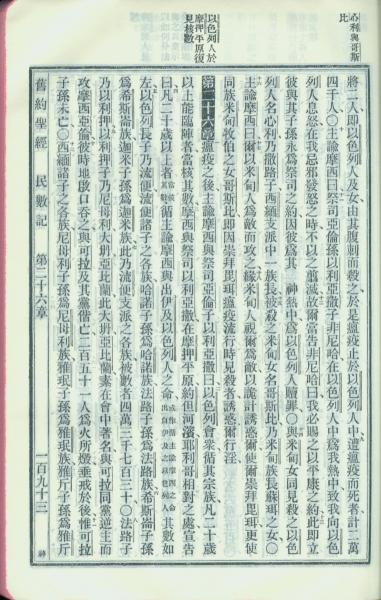 心利與哥斯
比
以色列人於
摩押平原復
見核數
將二人即以色列人及女由其腹刺而殺之於是瘟疫止於以色列人中遭瘟疫而死者計二萬
四千人〇主諭摩西曰祭司亞倫孫以利亞撒子非尼哈在以色列人中爲我熱中致我向以色
列人息怒在我忌邪發怒之時不以之翦滅故爾當告非尼哈曰我必賜之以平康之約此即立
彼與其子孫永爲祭司之約因彼爲其神熱中爲以色列人贖罪〇與米甸女同見殺之以色
列人名心利乃撒路子西緬支派中一族長被殺之米甸女名哥斯比乃米甸族長蘇珥之女〇
主諭摩西曰爾以米甸人爲敵而攻之緣米甸人視爾爲敵以詭計誘惑爾使爾崇拜毘珥更使
同族米甸牧伯之女哥斯比即因崇拜毘珥瘟疫流行時見殺者誘惑爾行淫
第二十六章 瘟疫之後主諭摩西與祭司亞倫子以利亞撒曰以色列會衆循其宗族凡二十歲
以上能臨陣者當核其數摩西與祭司以利亞撒在摩押平原約但河濱耶利哥相對之處宣告
曰凡二十歲以上者當被核其數循主諭摩西與出伊及以色列人之命其數如
左以色列長子乃流便流便諸子之各族哈諾子孫爲哈諾族法路子孫爲法路族希斯崙子孫
爲希斯崙族迦米子孫爲迦米族此乃流便支派之各族被數者四萬三千七百三十〇法路子
乃以利押以利押子乃尼母利大坍亞比蘭此大坍亞比蘭素在會中著名與可拉同黨逆主而
攻摩西亞倫彼時地啟口吞之與可拉及其黨偕亡二百五十一人爲火所燬垂戒於後惟可拉
子孫未亡〇西緬諸子之各族尼母利子孫爲尼母利族雅珉子孫爲雅珉族雅斤子孫爲雅斤
舊約聖經 民數記 第二十六章 一百九十三